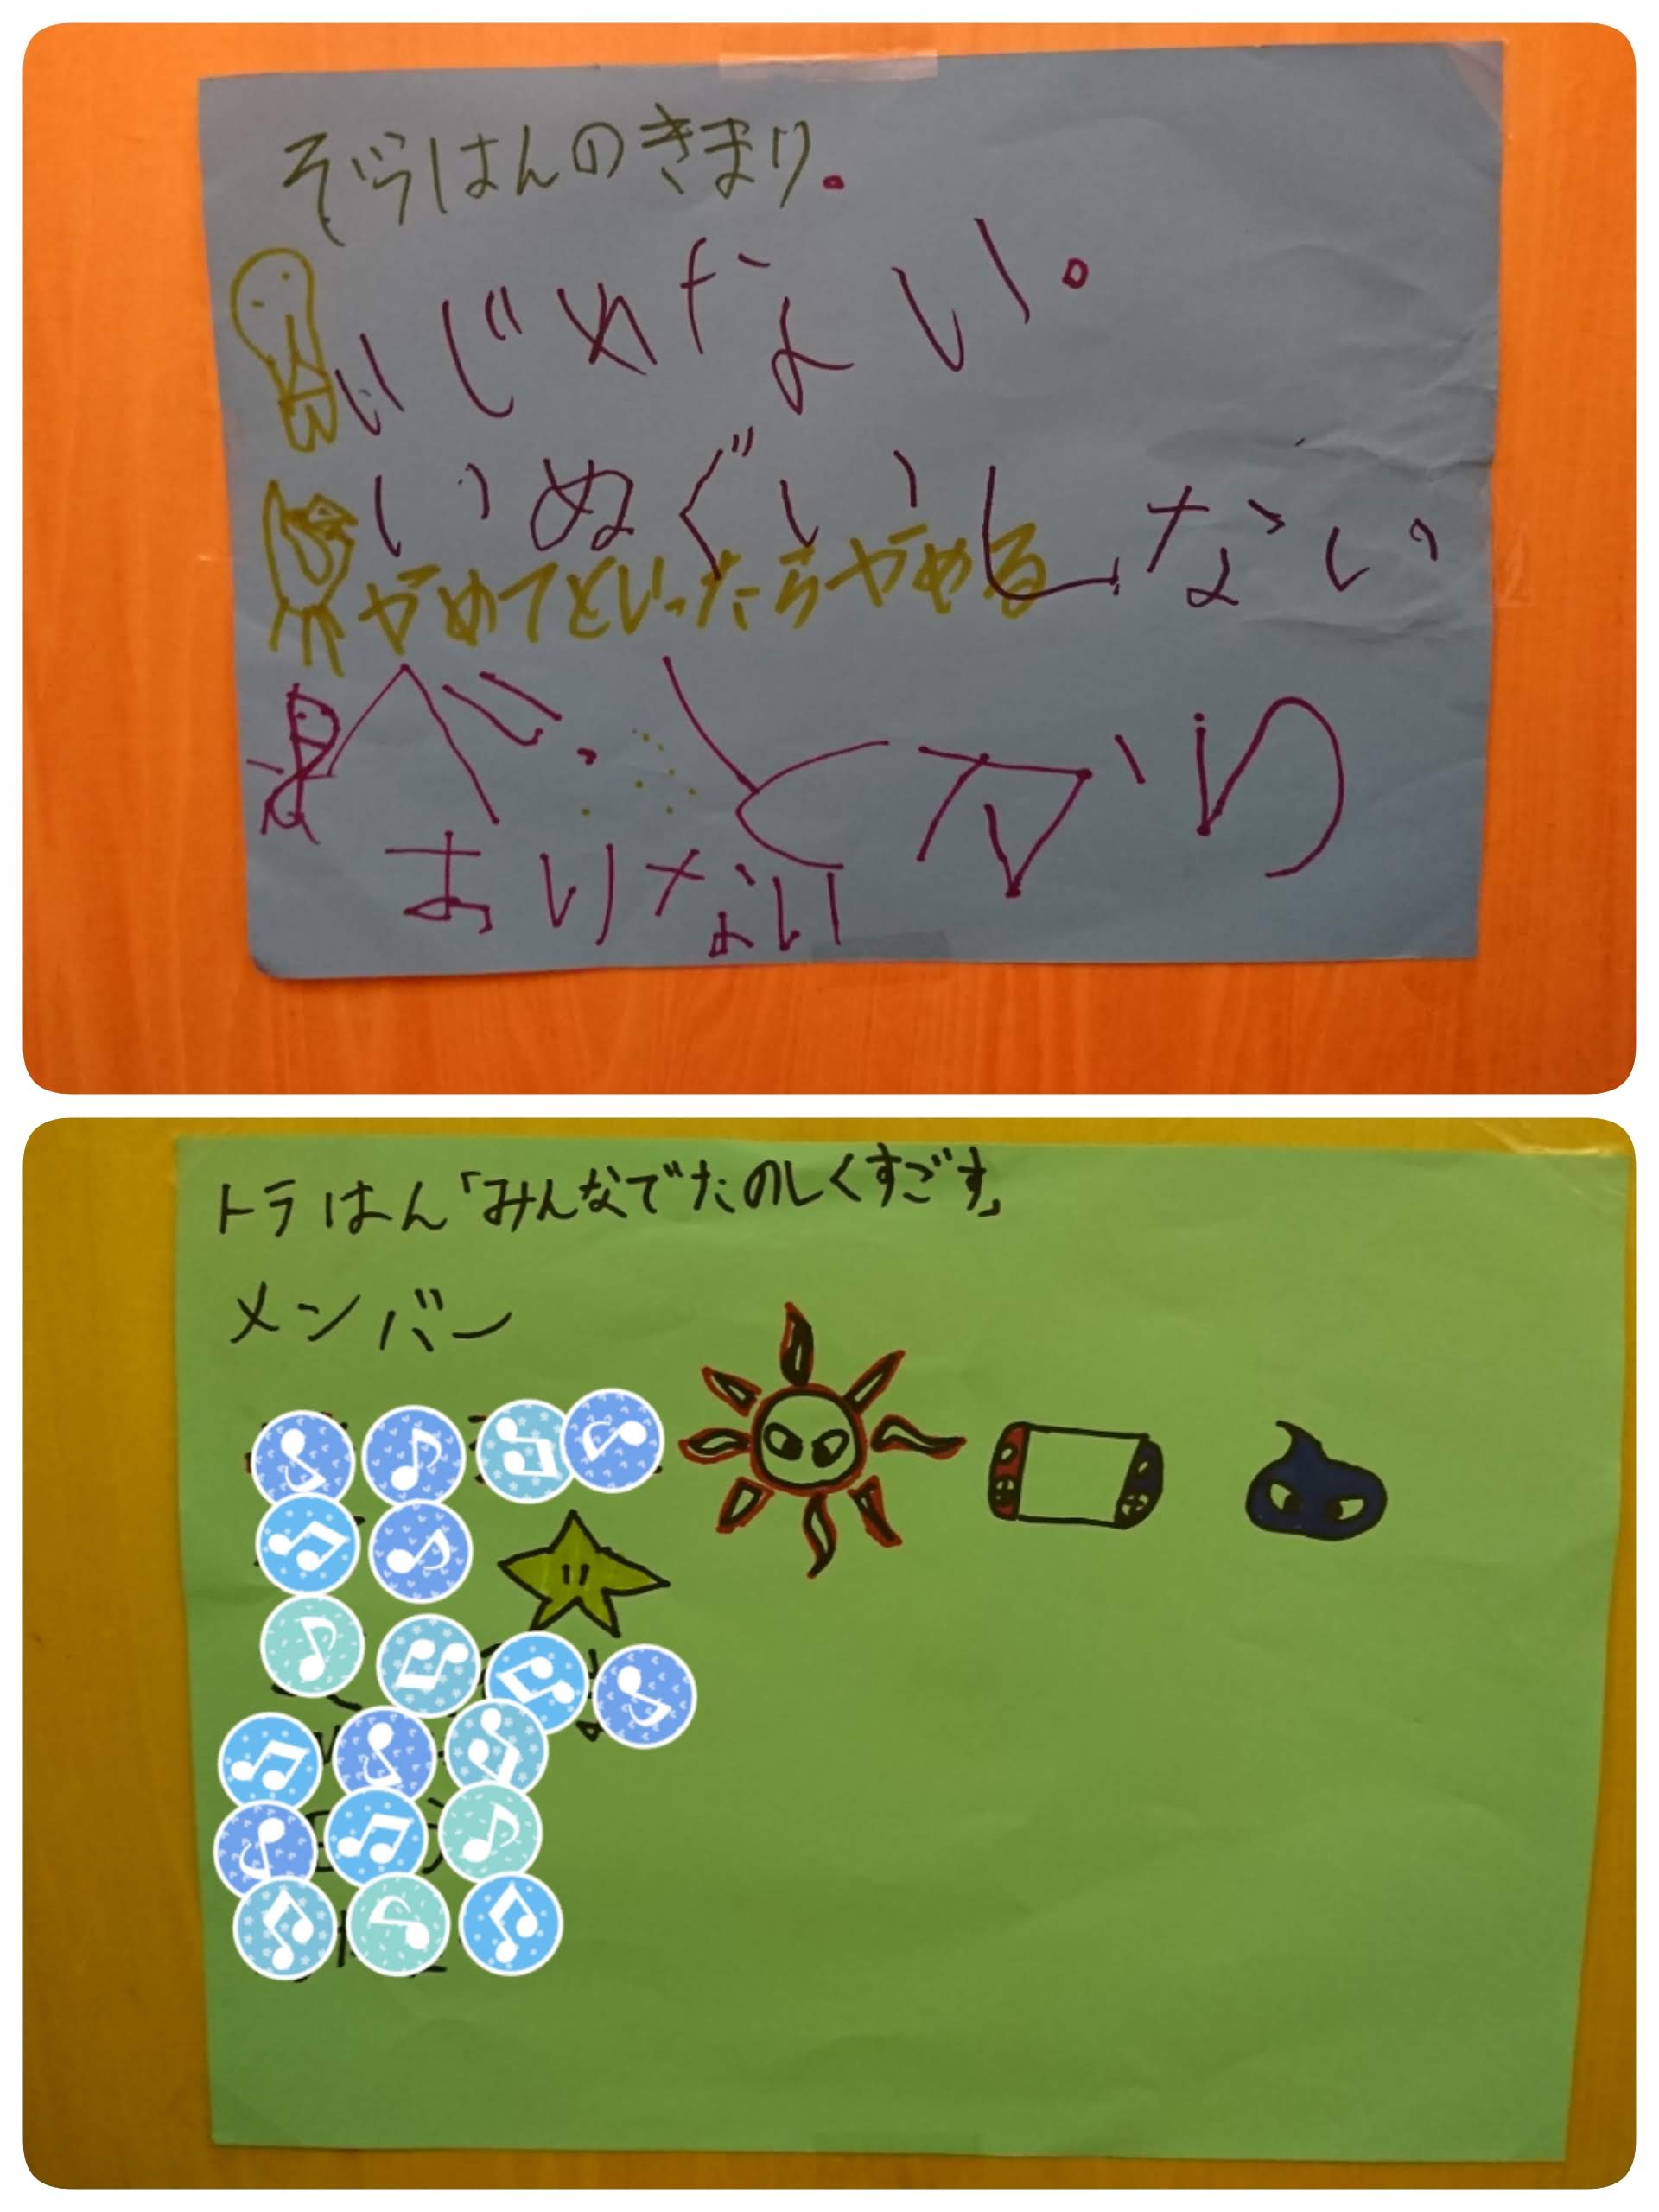 ぞうはんのきまり。
いじめない。
いぬぐいしない
やめてといったらやめる
べっとから
おりない
トラはん「みんなでたのしくすごす」
メンバー